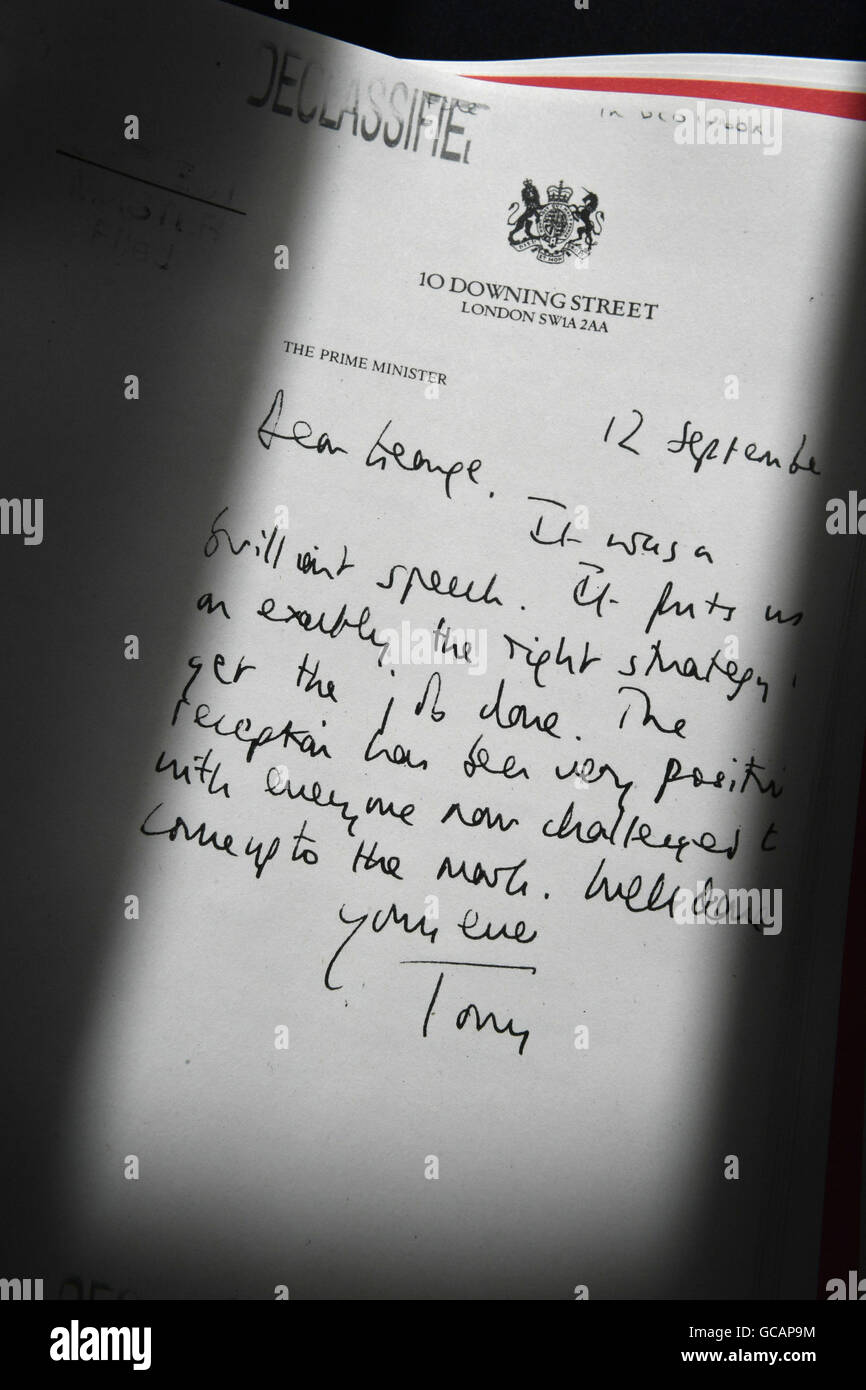 DECLASSIFIE
10 DOWNING STREET
LONDON SW1A 2AA
THE PRIME MINISTER
12 Septembe
Dear George.
It was a
brilliant speech. It puts us
on exactly the right strategy
get the job done. The
reception has been very positiv
with everyone now challenged t
come up to the mark. Well done
yours ever
Tony
alamy
Image ID: GCAP9M
www.alamy.com